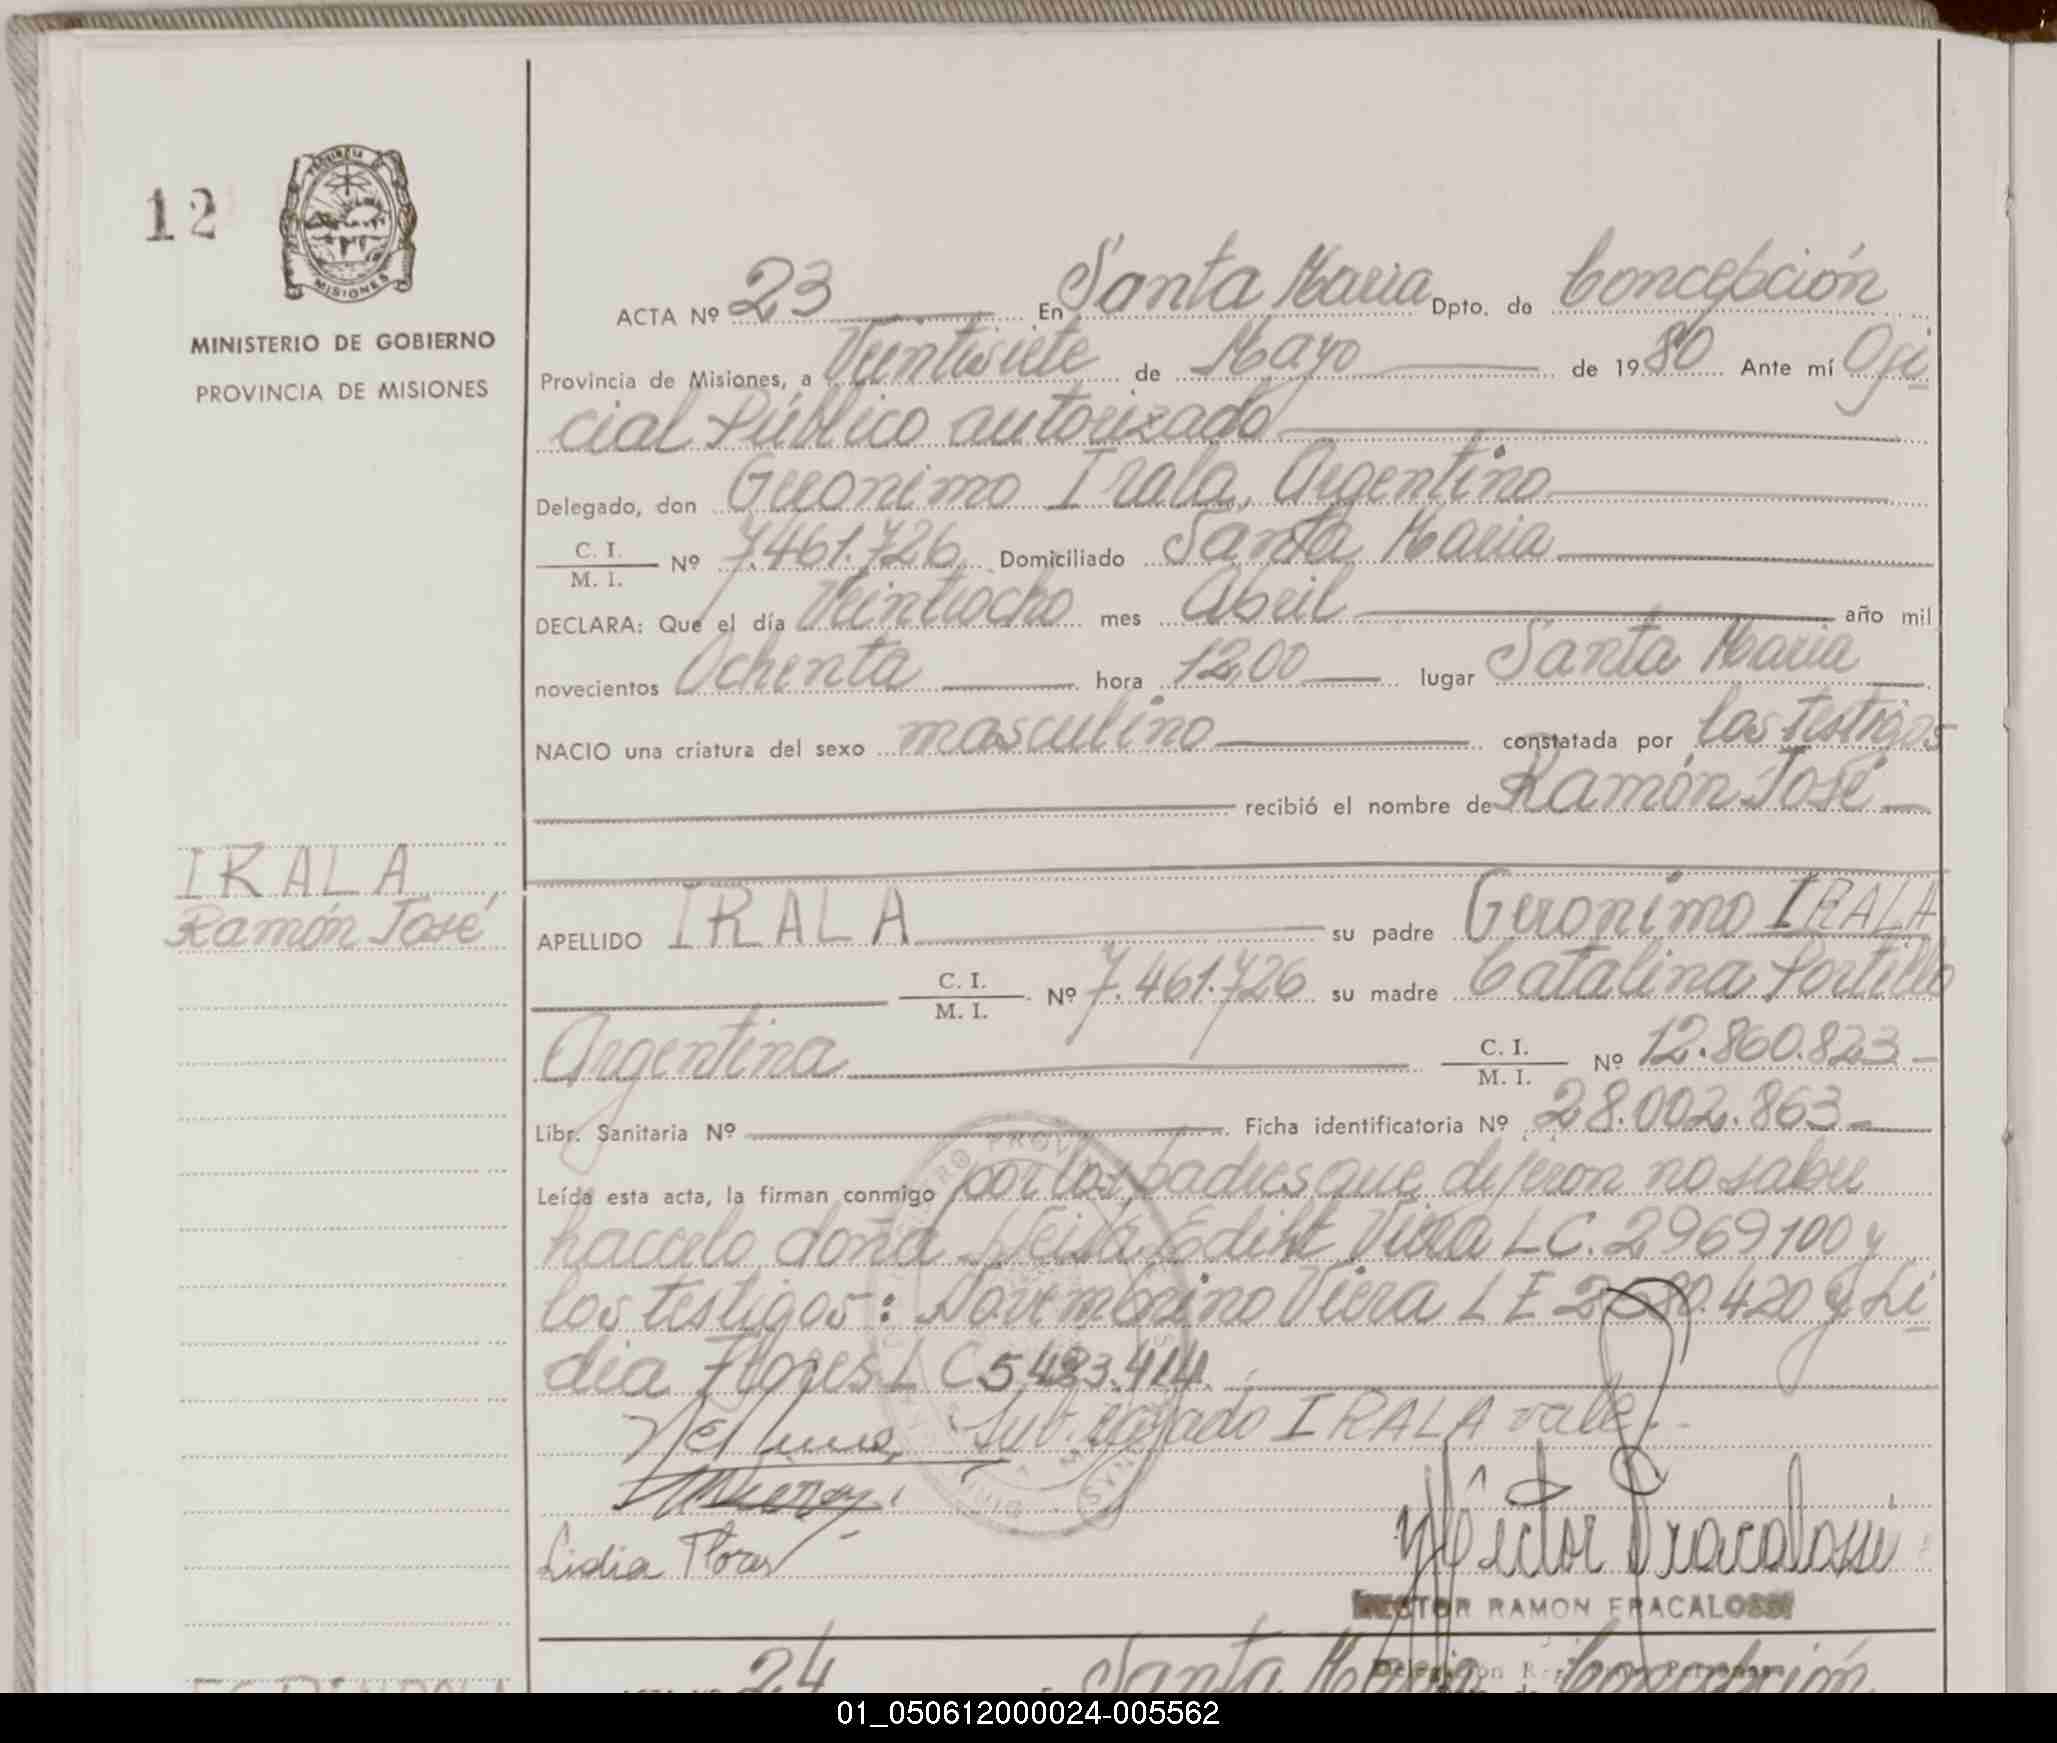 12
PROVINCIA
MISIONES
MINISTERIO DE GOBIERNO
PROVINCIA DE MISIONES
ACTA Nº 23 En Santa Maria Dpto. de Concepción
Provincia de Misiones, a Veintisiete de Mayo de 1980 Ante mí Ofi
cial Público autorizado
Delegado, don Geronimo Irala, Argentino
C. I.
M. I. Nº 7.461.726 Domiciliado Santa Maria
DECLARA: Que el día Veintiocho mes Abril año mil
novecientos Ochenta hora 12,00 lugar Santa Maria
NACIO una criatura del sexo masculino constatada por los testigos
recibió el nombre de Ramón José
IRALA
Ramón José
APELLIDO IRALA su padre Geronimo IRALA
C. I.
M. I. Nº 7.461.726 su madre Catalina Portillo
Argentina C. I.
M. I. Nº 12.860.823
Libr. Sanitaria Nº Ficha identificatoria Nº 28.002.863
Leída esta acta, la firman conmigo por los padres que dijeron no saber
hacerlo doña Ediht Viera LC. 2969100 y
los testigos: Viera L E 420 y Li
dia Flores L C 5483.414
Sub. rayado IRALA vale
Lidia Flores
Héctor Fracalossi
HECTOR RAMON FRACALOSSI
24 Santa Maria Concepción
01_050612000024-005562